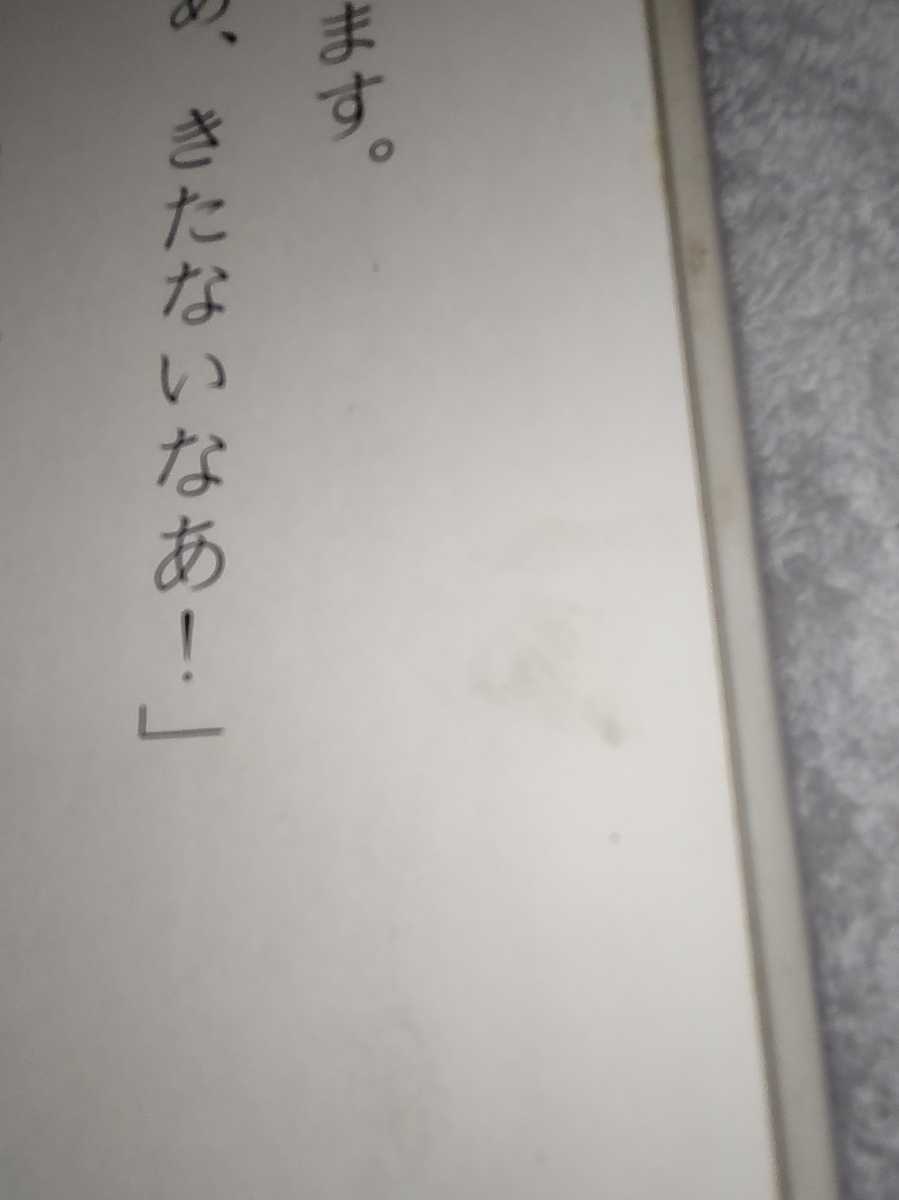 ます。
、きたないなあ！」